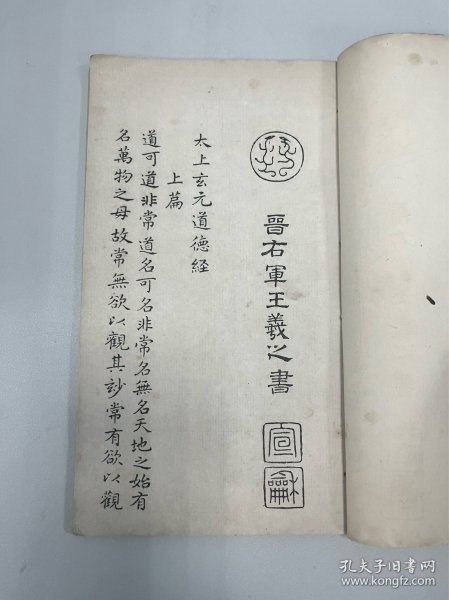 晉右軍王羲之書
宣
龢
太上玄元道德経
上篇
道可道非常道名可名非常名無名天地之始有
名萬物之母故常無欲以觀其妙常有欲以觀
孔夫子旧书网
www.kongfz.com